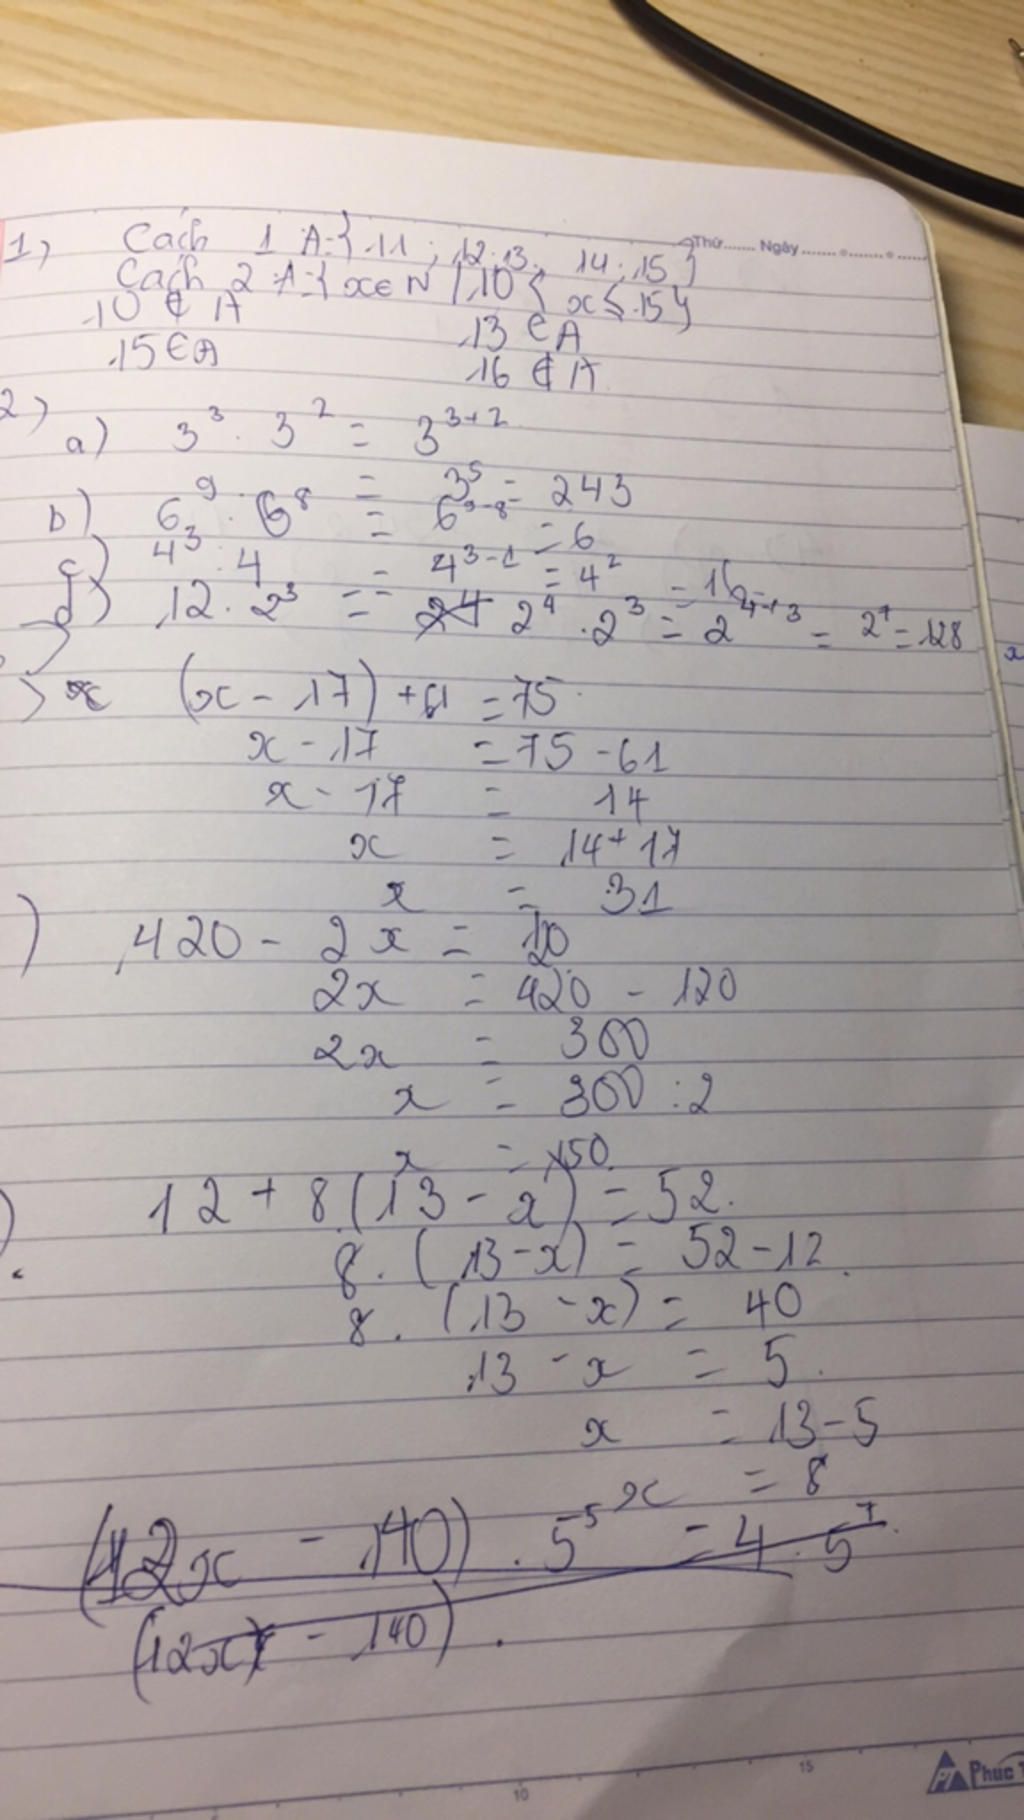 Thứ....... Ngày.......
1) Cách 1 A={11; 12; 13; 14; 15}
Cách 2 A={x∈N / 10 < x ≤ 15}
10 ∉ A 13 ∈ A
15 ∈ A 16 ∉ A
2)
a) 3³ . 3² = 3³⁺²
= 3⁵ = 243
b) 6⁹ : 6⁸ = 6⁹⁻⁸ = 6
c) 4³ : 4 = 4³⁻¹ = 4² = 16
d) 12 . 2³ = 2⁴ . 2³ = 2⁴⁺³ = 2⁷ = 128
(x - 17) + 61 = 75
x - 17 = 75 - 61
x - 17 = 14
x = 14 + 17
x = 31
) 420 - 2x = 120
2x = 420 - 120
2x = 300
x = 300 : 2
x = 150
) 12 + 8(13 - x) = 52.
8. (13 - x) = 52 - 12
8. (13 - x) = 40
13 - x = 5
x = 13 - 5
x = 8
(12x - 140) . 5⁵ = 4 . 5⁷
(12x - 140) .
10 15 Phúc